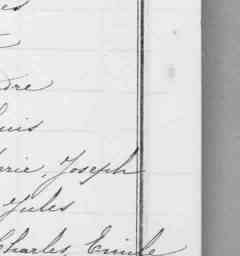 es
dre
uis
rie, Joseph
Jules
Charles, Emile